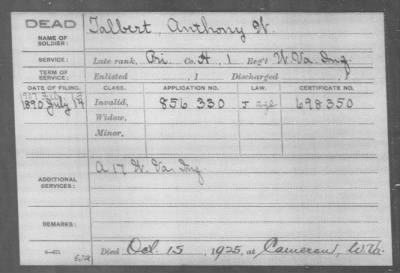 DEAD
NAME OF
SOLDIER:
Talbert, Anthony W.
SERVICE:
Late rank, Pri. Co. H, 1 Reg't W. Va. Inf.
TERM OF
SERVICE:
Enlisted , 1 Discharged ,
DATE OF FILING. CLASS. APPLICATION NO. LAW. CERTIFICATE NO.
1890 July 14 Invalid, 856 330 J 698350
Widow,
Minor,
ADDITIONAL
SERVICES:
A 17 W. Va. Inf
REMARKS:
Died Oct. 15, 1925, at Cameron, W. Va.